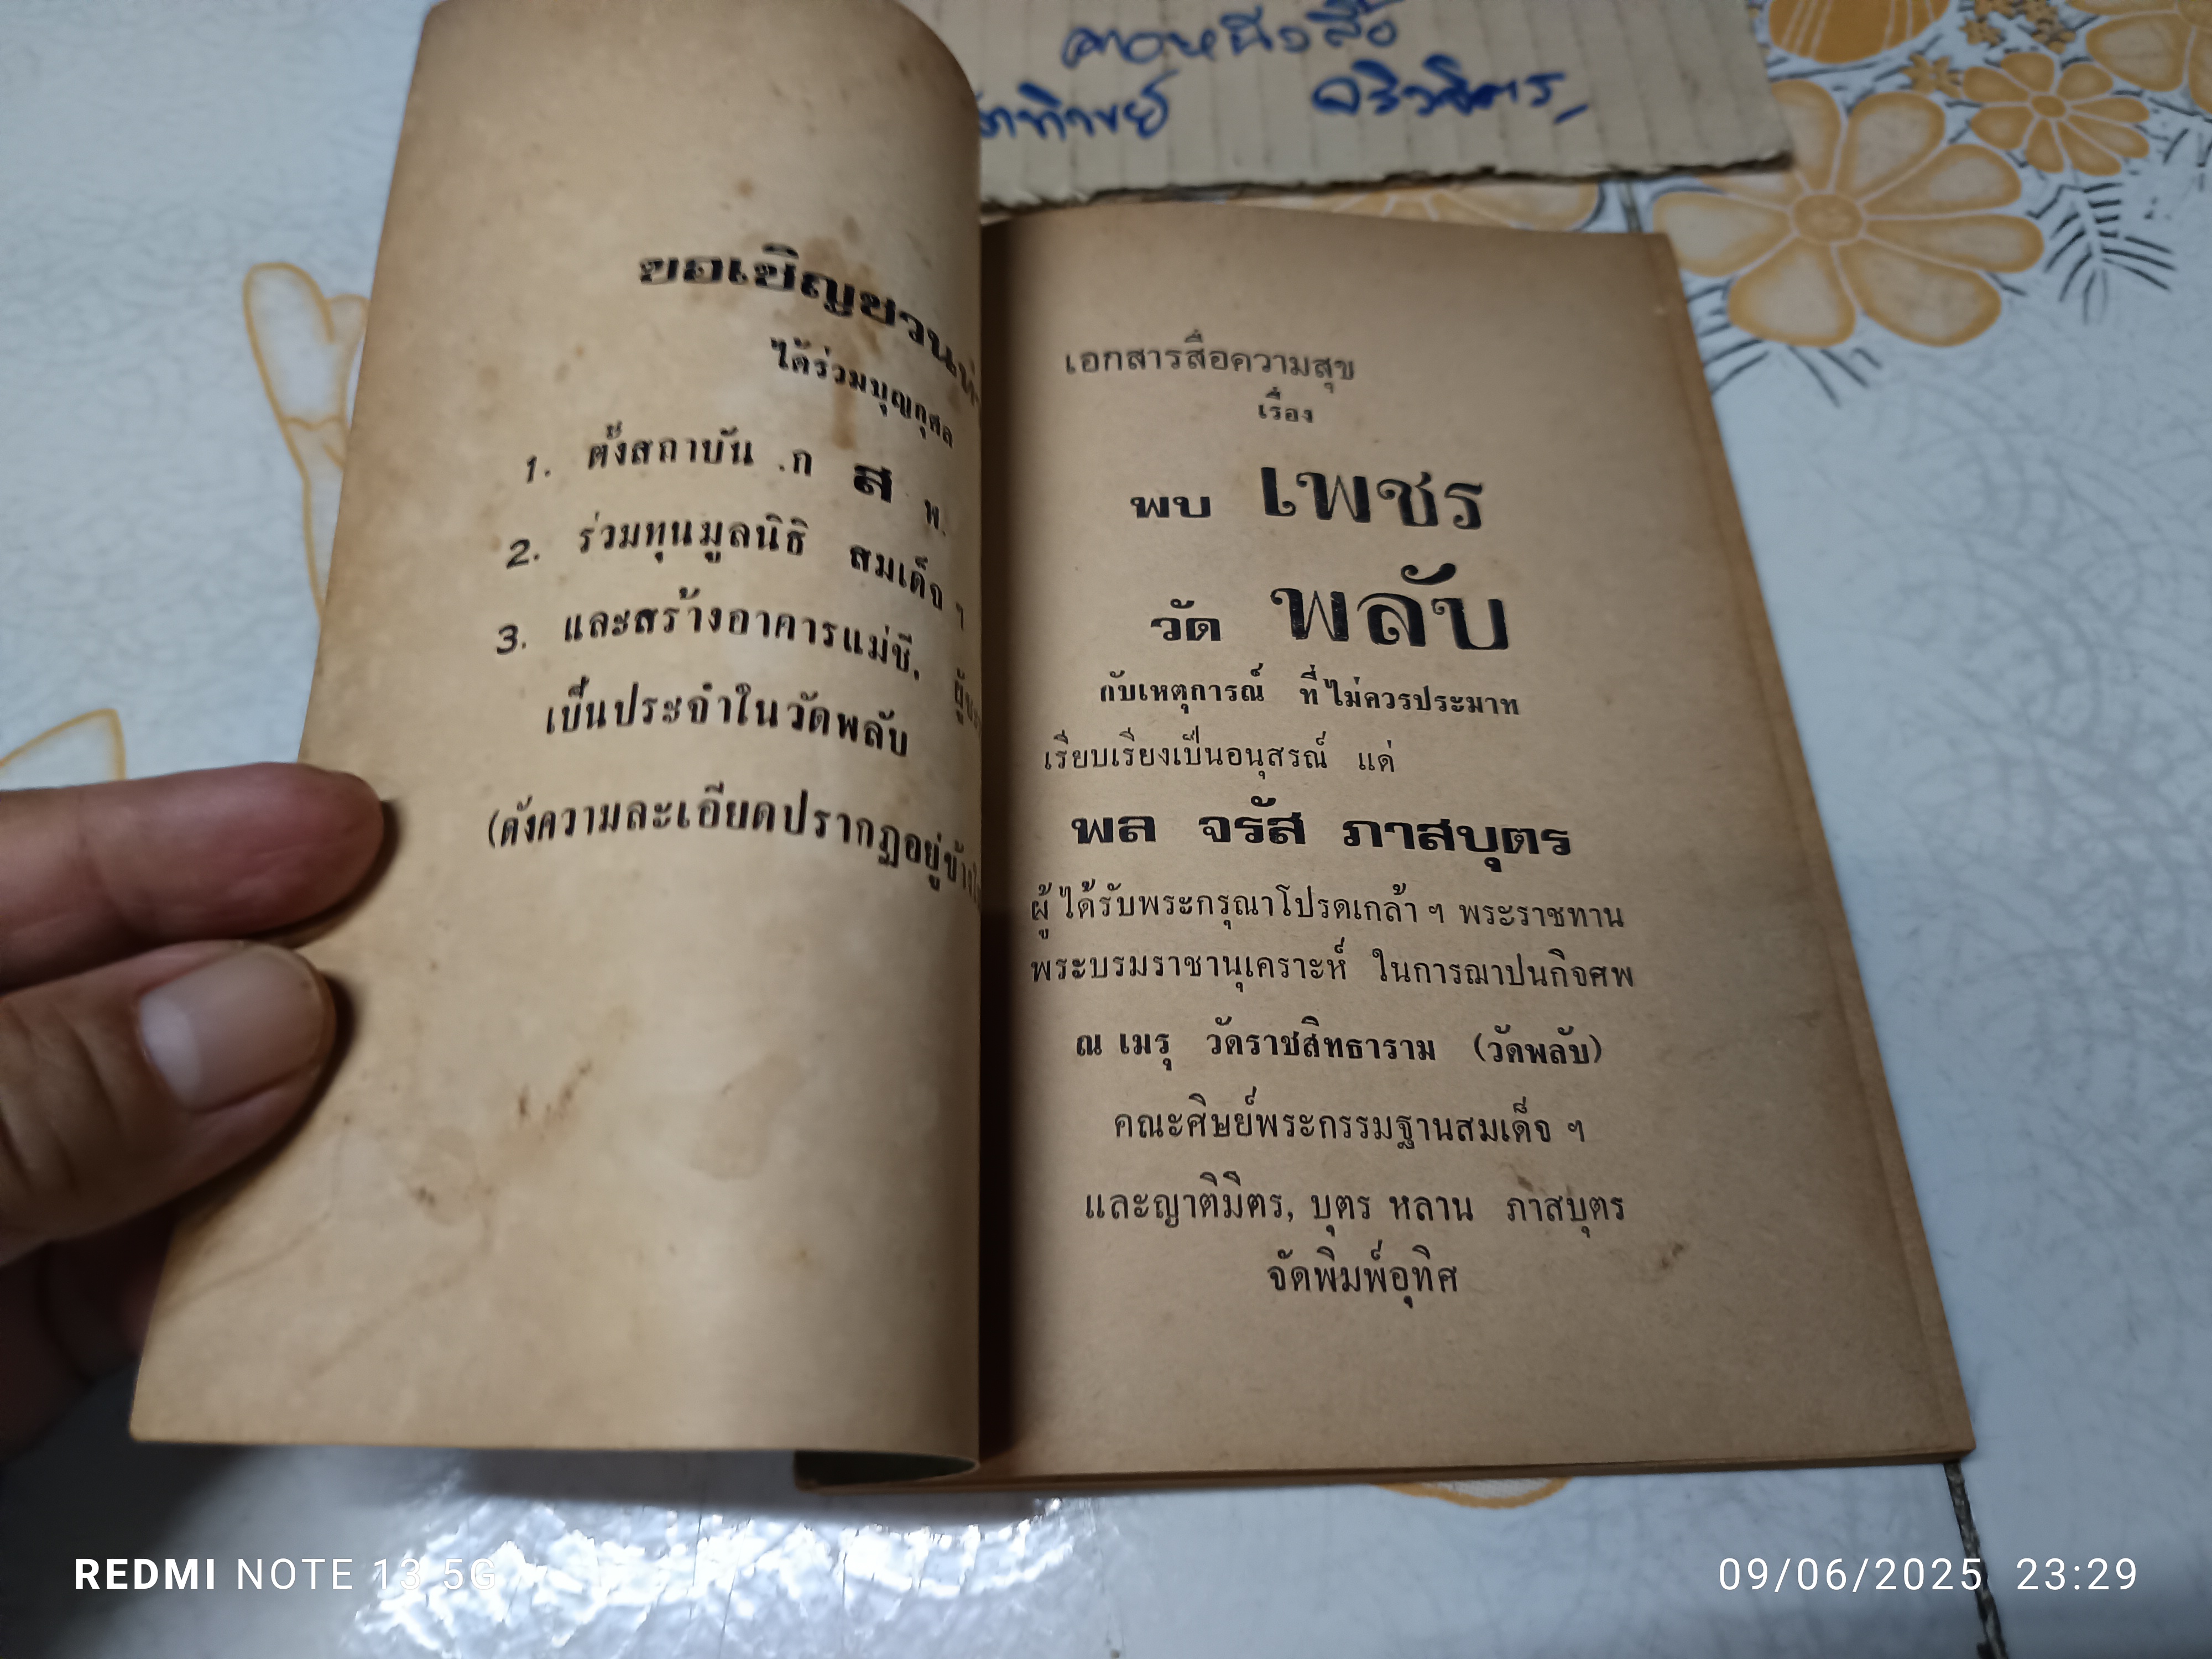 ขายหนังสือ
จริงจิตร
ขอเชิญชวนท่า
ได้ร่วมบุญกุศล
1. ตั้งสถาบัน .ก ส พ.
2. ร่วมทุนมูลนิธิ สมเด็จ ฯ
3. และสร้างอาคารแม่ชี.
เป็นประจำในวัดพลับ
(ดังความละเอียดปรากฏอยู่ข้างใ
เอกสารสื่อความสุข
เรื่อง
พบ เพชร
วัด พลับ
กับเหตุการณ์ ที่ไม่ควรประมาท
เรียบเรียงเป็นอนุสรณ์ แด่
พล จรัส ภาสบุตร
ผู้ได้รับพระกรุณาโปรดเกล้า ฯ พระราชทาน
พระบรมราชานุเคราะห์ ในการฌาปนกิจศพ
ณ เมรุ วัดราชสิทธาราม (วัดพลับ)
คณะศิษย์พระกรรมฐานสมเด็จ ฯ
และญาติมิตร, บุตร หลาน ภาสบุตร
จัดพิมพ์อุทิศ
REDMI NOTE 13 5G
09/06/2025 23:29